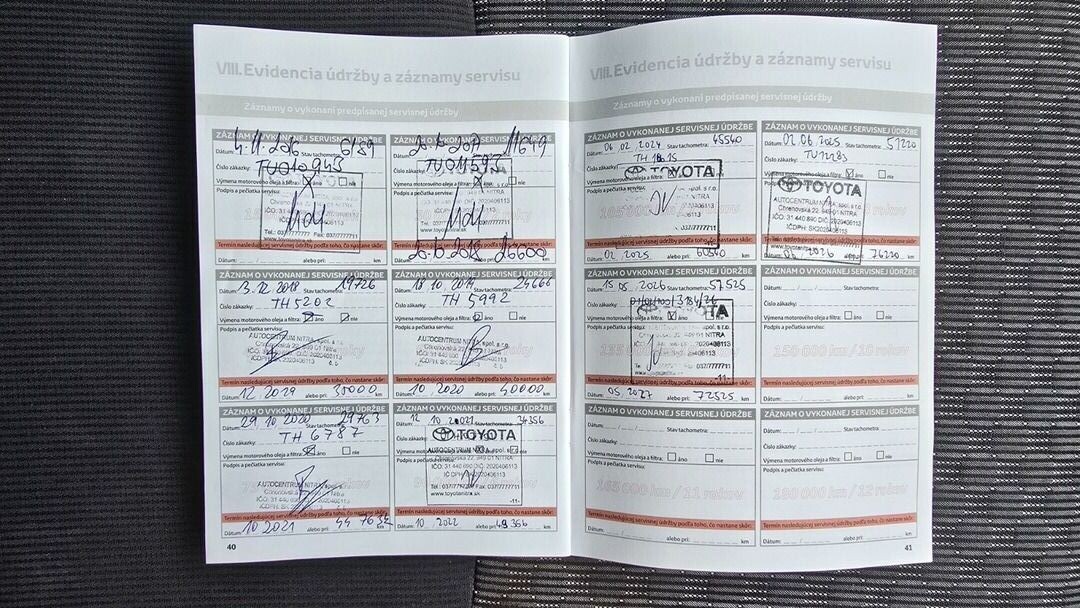 VIII. Evidencia údržby a záznamy servisu
Záznamy o vykonaní predpísanej servisnej údržby
ZÁZNAM O VYKONANEJ SERVISNEJ ÚDRŽBE
Dátum: 4. 11. 2016 Stav tachometra: 6189
Číslo zákazky: TU010943
Výmena motorového oleja a filtra: áno nie
Podpis a pečiatka servisu:
IČO: 31 440 890
Tel.: 037/7777777 Fax: 037/7777711
www.toyotanitra.sk
Termín nasledujúcej servisnej údržby podľa toho, čo nastane skôr:
ZÁZNAM O VYKONANEJ SERVISNEJ ÚDRŽBE
Dátum: 2017 Stav tachometra: 11649
Číslo zákazky: TU011593
Výmena motorového oleja a filtra: áno nie
Podpis a pečiatka servisu:
www.toyotanitra.sk
Termín nasledujúcej servisnej údržby podľa toho, čo nastane skôr:
2018 26600
ZÁZNAM O VYKONANEJ SERVISNEJ ÚDRŽBE
Dátum: 3. 12. 2018 Stav tachometra: 19726 km
Číslo zákazky: TH5202
Výmena motorového oleja a filtra: áno nie
Podpis a pečiatka servisu:
AUTOCENTRUM NITRA, spol. s r.o.
Termín nasledujúcej servisnej údržby podľa toho, čo nastane skôr:
Dátum: 12. 2019 alebo pri: 35000 km
ZÁZNAM O VYKONANEJ SERVISNEJ ÚDRŽBE
Dátum: 18 10 2019 Stav tachometra: 24666 km
Číslo zákazky: TH 5992
Výmena motorového oleja a filtra: áno nie
Podpis a pečiatka servisu:
AUTOCENTRUM NITRA, spol. s r.o.
Termín nasledujúcej servisnej údržby podľa toho, čo nastane skôr:
Dátum: 10. 2020 alebo pri: 40000 km
ZÁZNAM O VYKONANEJ SERVISNEJ ÚDRŽBE
Dátum: 29 10 2020 Stav tachometra: 29763 km
Číslo zákazky: TH 6787
Výmena motorového oleja a filtra: áno nie
Podpis a pečiatka servisu:
AUTOCENTRUM NITRA, spol. s r.o.
Termín nasledujúcej servisnej údržby podľa toho, čo nastane skôr:
Dátum: 10. 2021 alebo pri:
ZÁZNAM O VYKONANEJ SERVISNEJ ÚDRŽBE
Dátum: 12 10 2021 Stav tachometra: 34356
Číslo zákazky: TOYOTA
Výmena motorového oleja a filtra: áno nie
AUTOCENTRUM NITRA, spol. s r.o.
Podpis a pečiatka servisu:
Chrenovská 22, 949 01 NITRA
IČO: 31 440 890 DIČ: 2020406113
www.toyotanitra.sk
-11-
Termín nasledujúcej servisnej údržby podľa toho, čo nastane skôr:
Dátum: 10. 2022 alebo pri: 49356 km
40
VIII. Evidencia údržby a záznamy servisu
Záznamy o vykonaní predpísanej servisnej údržby
ZÁZNAM O VYKONANEJ SERVISNEJ ÚDRŽBE
Dátum: 06 02. 2024 Stav tachometra: 45540
Číslo zákazky:
TOYOTA
Výmena motorového oleja a filtra:
Podpis a pečiatka servisu:
Termín nasledujúcej servisnej údržby podľa toho, čo nastane skôr:
Dátum: 02. 2025 alebo pri: 60540 km
ZÁZNAM O VYKONANEJ SERVISNEJ ÚDRŽBE
Dátum: 02. 06. 2025 Stav tachometra: 57220
Číslo zákazky:
Výmena motorového oleja a filtra: áno nie
Podpis a pečiatka servisu:
TOYOTA
AUTOCENTRUM NITRA, spol. s r.o.
Chrenovská 22, 949 01 NITRA
IČO: 31 440 890 DIČ: 2020406113
IČDPH: SK2020406113
Termín nasledujúcej servisnej údržby podľa toho, čo nastane skôr:
www.toyotanitra.sk
Dátum: 06. 2026 alebo pri: 76220 km
ZÁZNAM O VYKONANEJ SERVISNEJ ÚDRŽBE
Dátum: 15 05. 2026 Stav tachometra: 57525 km
Číslo zákazky:
Výmena motorového oleja a filtra: áno nie
Podpis a pečiatka servisu:
-11-
Termín nasledujúcej servisnej údržby podľa toho, čo nastane skôr:
Dátum: 05. 2027 alebo pri: 72525 km
ZÁZNAM O VYKONANEJ SERVISNEJ ÚDRŽBE
Dátum: Stav tachometra: km
Číslo zákazky:
Výmena motorového oleja a filtra: áno nie
Podpis a pečiatka servisu:
150 000 km / 10 rokov
Termín nasledujúcej servisnej údržby podľa toho, čo nastane skôr:
Dátum: alebo pri: km
ZÁZNAM O VYKONANEJ SERVISNEJ ÚDRŽBE
Dátum: Stav tachometra: km
Číslo zákazky:
Výmena motorového oleja a filtra: áno nie
Podpis a pečiatka servisu:
165 000 km / 11 rokov
Termín nasledujúcej servisnej údržby podľa toho, čo nastane skôr:
Dátum: alebo pri: km
ZÁZNAM O VYKONANEJ SERVISNEJ ÚDRŽBE
Dátum: Stav tachometra: km
Číslo zákazky:
Výmena motorového oleja a filtra: áno nie
Podpis a pečiatka servisu:
180 000 km / 12 rokov
Termín nasledujúcej servisnej údržby podľa toho, čo nastane skôr:
Dátum: alebo pri: km
41